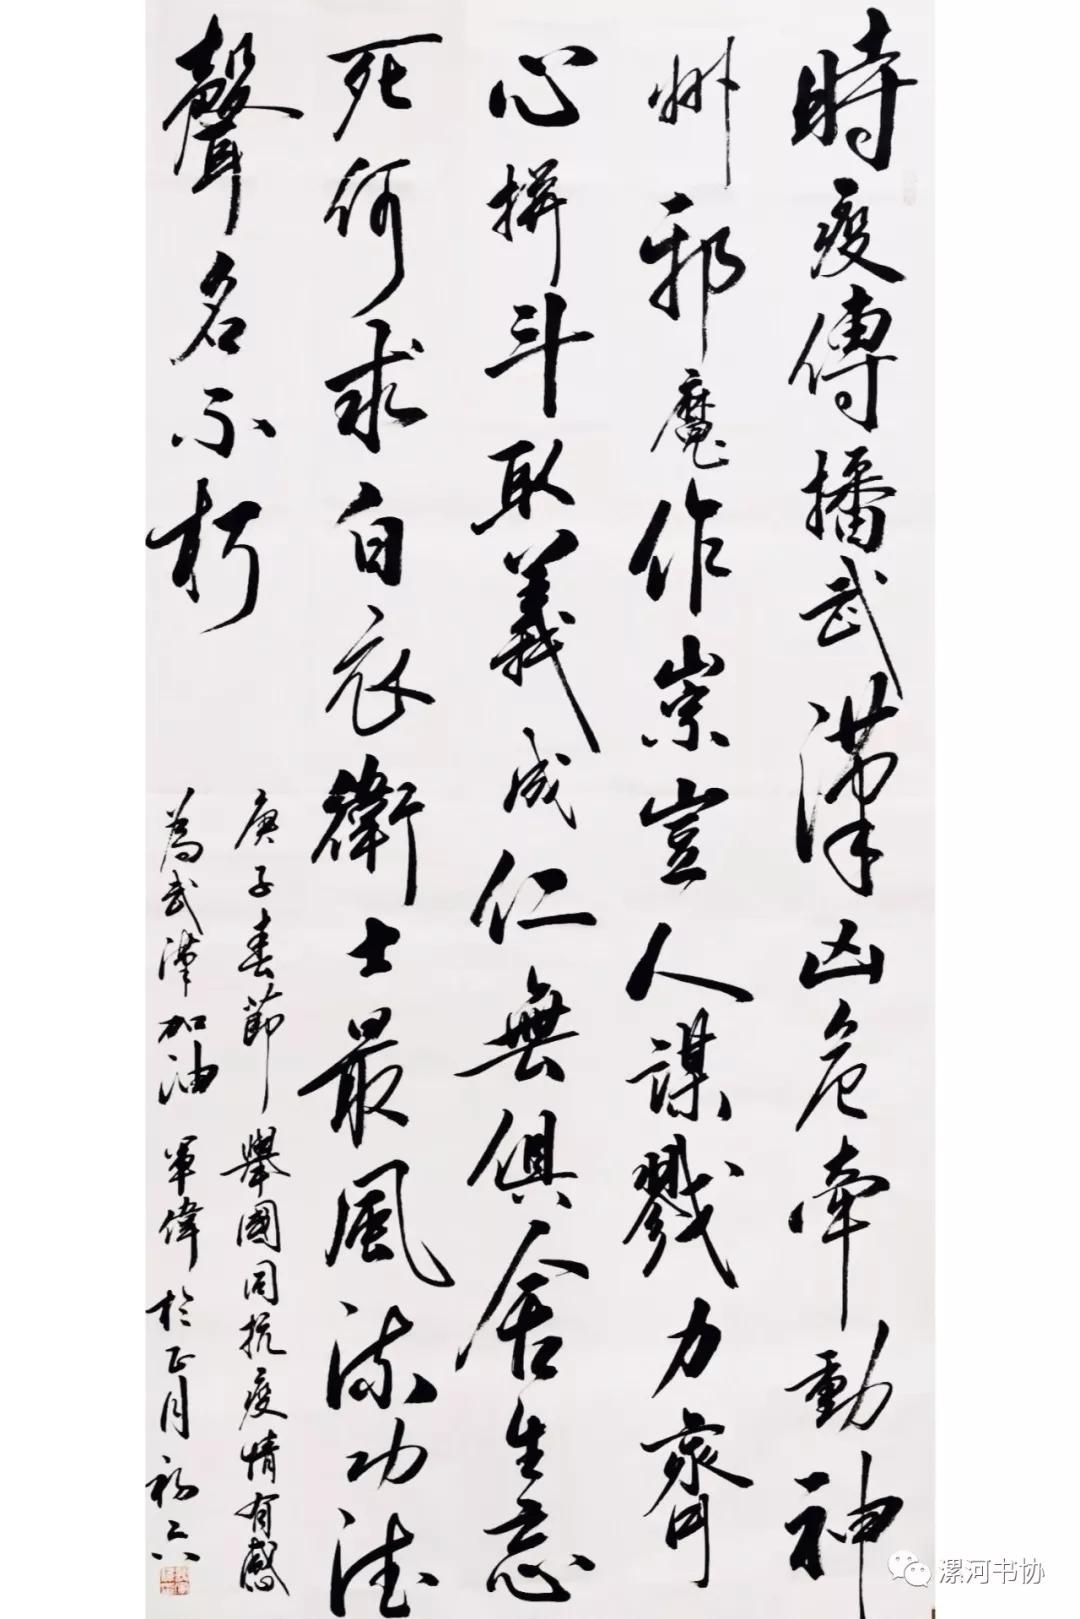 時疫傳播武漢凶危牽動神
州邪魔作祟豈人謀戮力齊
心拼斗取義成仁無俱舍生忘
死何求白衣衛士最風流功德
聲名不朽
庚子春節舉國同抗疫情有感
為武漢加油 軍偉於正月初六
漯河书协